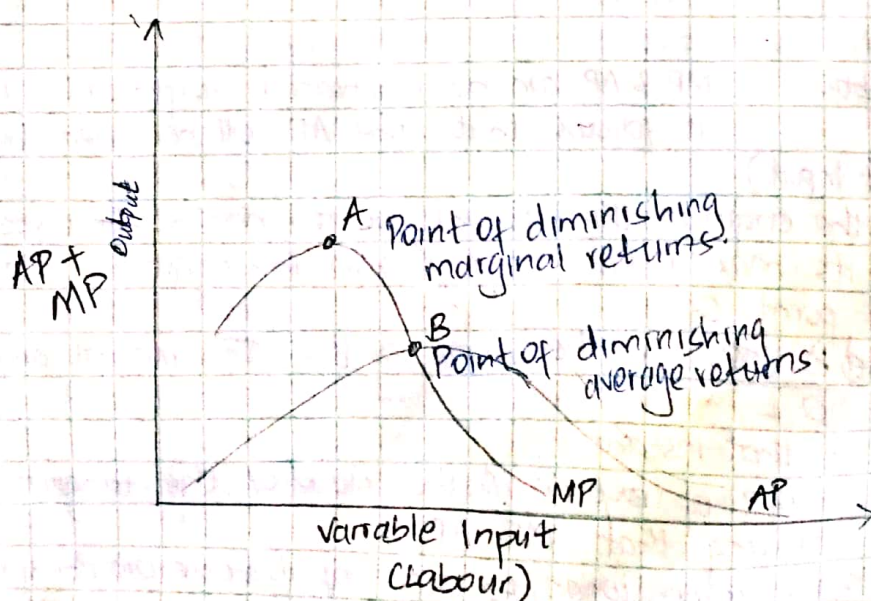 Output
AP +
MP
A
Point of diminishing
marginal returns.
B
Point of diminishing
average returns:
MP
AP
Variable Input
(Labour)